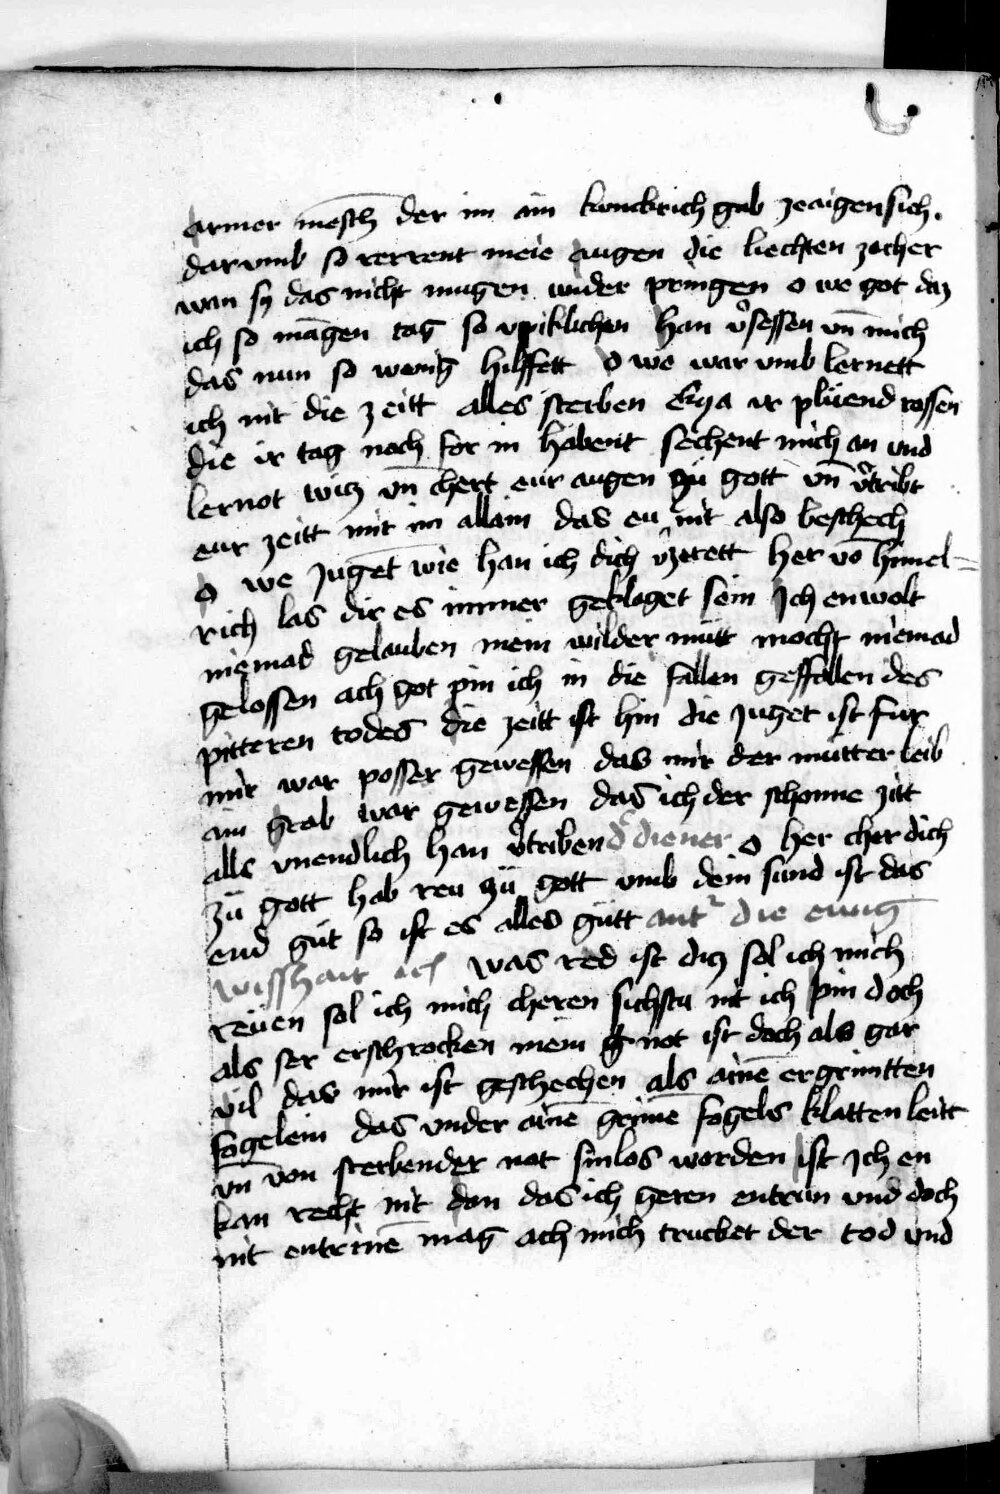 armer mēsch der im ain kunckrich gab zeaigen sich.
dar vmb so rerrent meie augen die liechten zecher
wan sy das nicht mugen wider pringen o we got daz
ich so māgen tag so vpiklichen han v̂sessen vn̄ mich
das nun so wenig hilffett O we war vmb lernett
ich nit die zeitt alles sterben Eya ir plüend rossen
die ir tag noch for in habent sechent mich an und
lernot witz vn̄ chert eur augen zü gott vn̄ v̂tribt
eur zeitt mit im allain das eu nit also beschech
O we Juget wie han ich dich v̂zerett Her vō himel=
rich las dir es immer geklaget sein Ich enwolt
niemad gelauben mein wilder mütt mocht niemad
gelossen ach got pin ich in die fallen geffallen des
pitteren todes die zeitt ist hin die Juget ist fur
mir war posser gewessen das mir der mütter leib
ain grab war gewessen das ich der schonne zitt
alls vnendlich han v̂triben d̂ diener O her cher dich
zü gott hab reu zü gott vmb dein sund ist das
end güt so ist es alles gütt ant die ewig
wisshait was red ist diz sol ich mich
reüen sol ich mich cheren sichstu nit ich pin doch
als ser erschrocken mein not ist doch als gar
vil das mir ist geschechen als ainē ergrimtten
fogelein das vnder ainē grime fogels klatten leitt
vn̄ von sterbender not sinlos worden ist Ich en
kan recht nit dan das ich geren entrun vnd doch
nit entrinē mag ach mich trucket der tod vnd